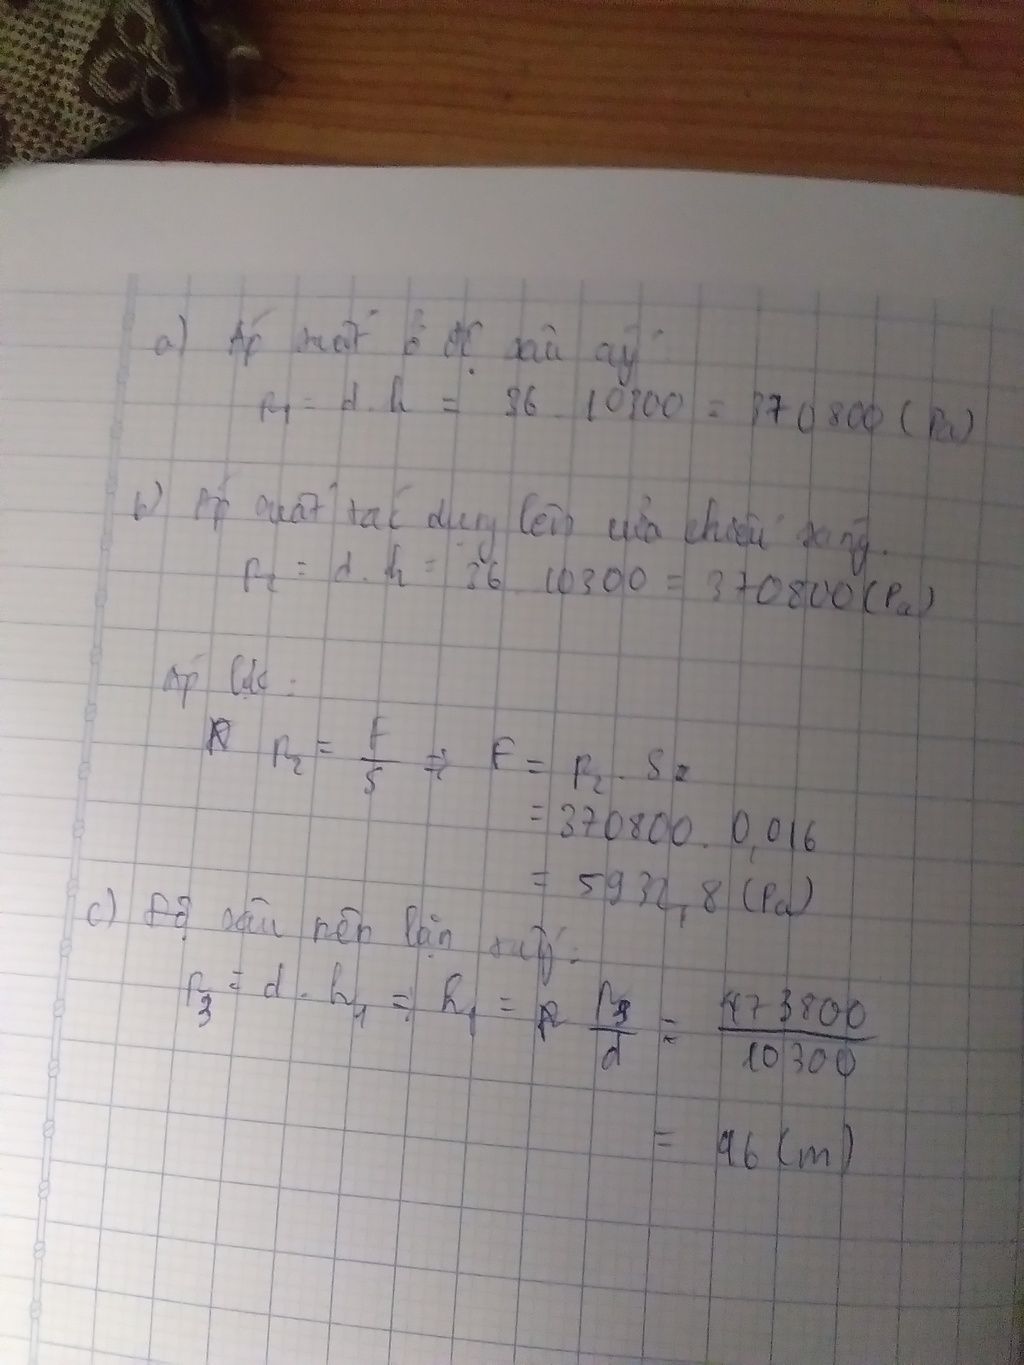 a) Áp suất ở độ sâu ấy
p1 = d.h = 36 . 10300 = 370800 (Pa)
b) Áp suất tác dụng lên cửa chiếu sáng.
p2 = d.h = 36 . 10300 = 370800 (Pa)
Áp lực:
p2 = F/S => F = p2 . S =
= 370800 . 0,016
= 5932,8 (Pa)
c) Độ sâu nên lặn
p3 = d.h1 => h1 = p3/d = 473800/10300
= 46 (m)